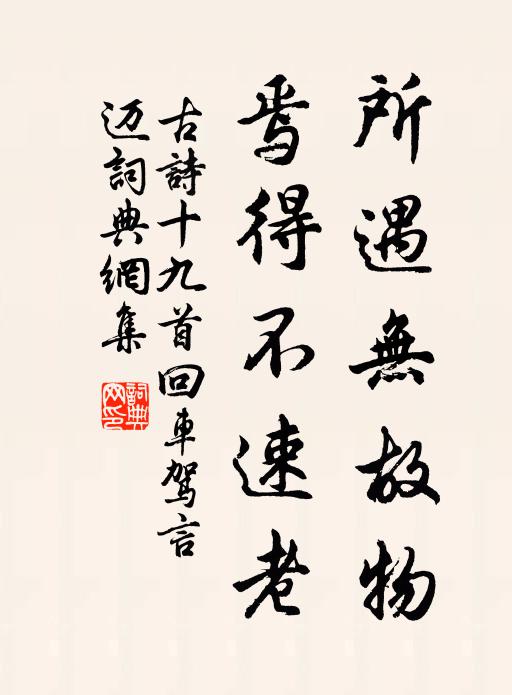 所遇無故物
焉得不速老
古詩十九首回車駕言
迈詞典網集
詞典
網印